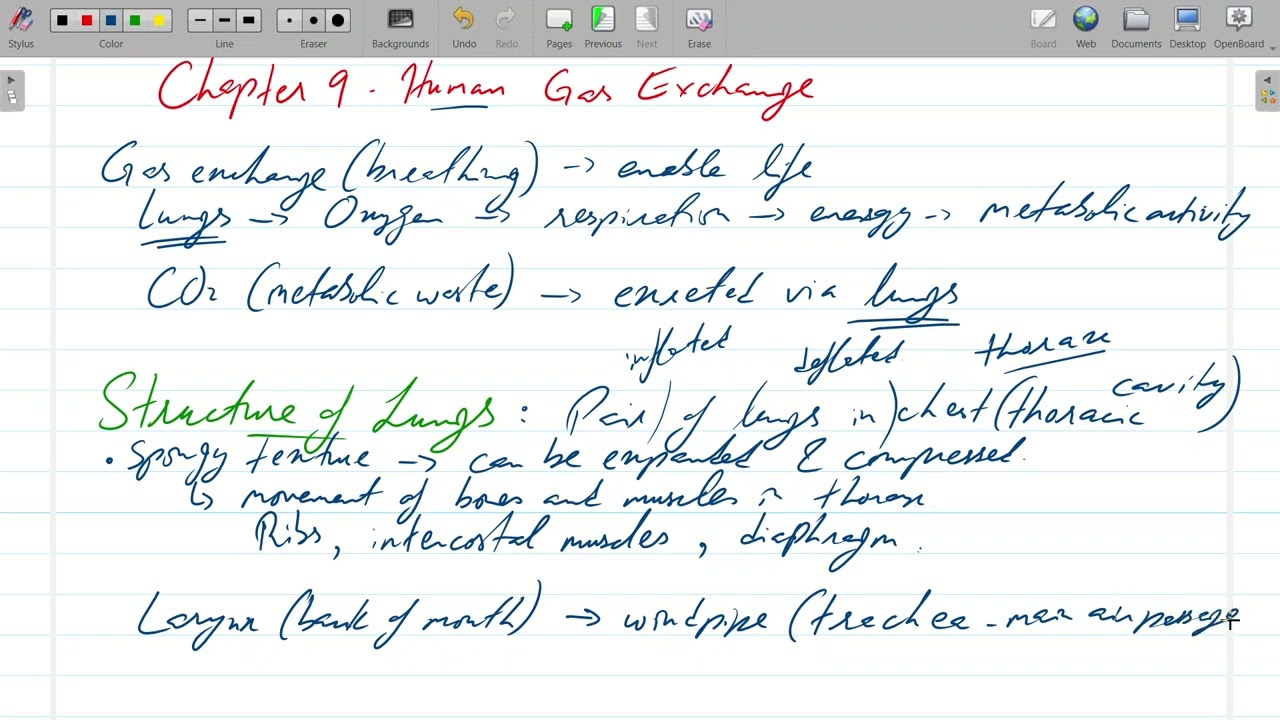 Stylus Color Line Eraser Backgrounds Undo Redo Pages Previous Next Erase Board Web Documents Desktop OpenBoard
Chapter 9. Human Gas Exchange
Gas exchange (breathing) → enable life
Lungs → Oxygen → respiration → energy → metabolic activity
CO2 (metabolic waste) → excreted via lungs
inflated deflated thorax
Structure of Lungs : Pair) of lungs in) chest (thoracic cavity)
• Spongy texture → can be expanded & compressed.
↳ movement of bones and muscles in thorax
Ribs, intercostal muscles, diaphragm.
Larynx (back of mouth) → windpipe (trachea - main air passage